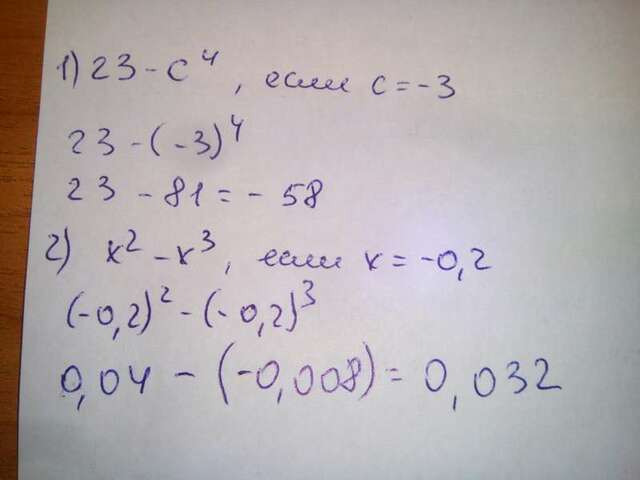 1) 23 - c⁴, если c = -3
23 - (-3)⁴
23 - 81 = - 58
2) x² - x³, если x = -0,2
(-0,2)² - (-0,2)³
0,04 - (-0,008) = 0,032